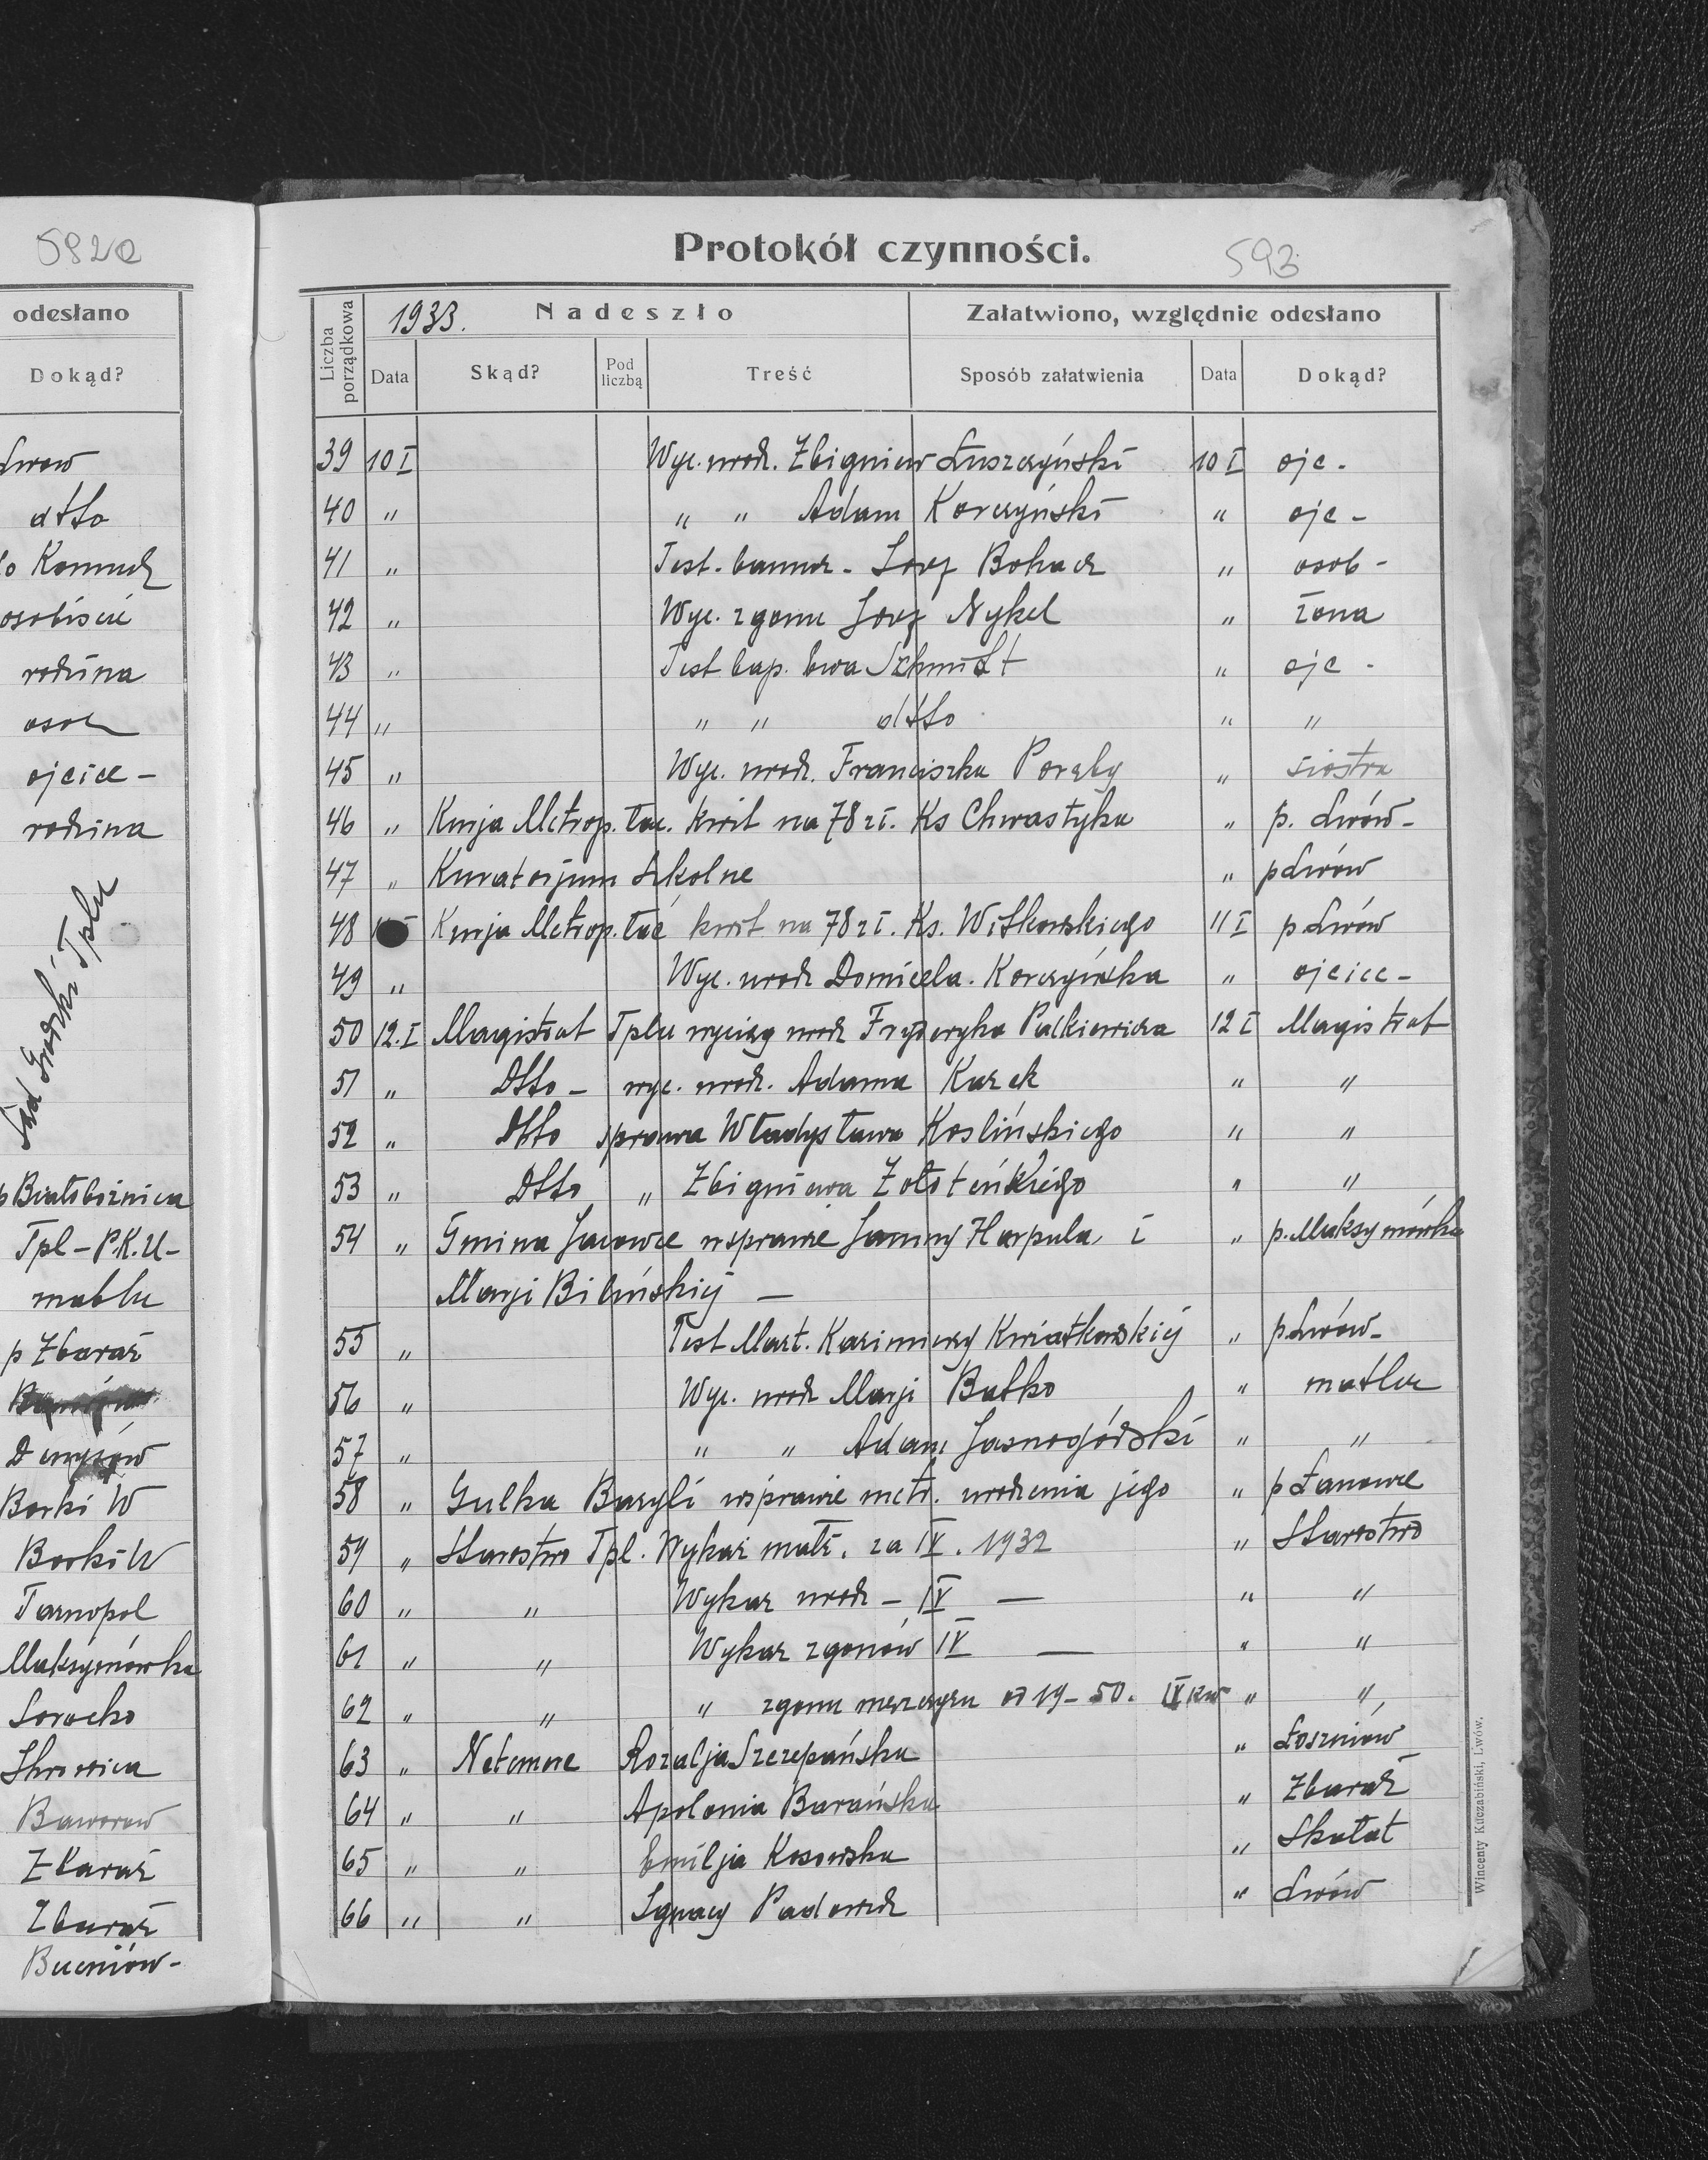 5920
odesłano
Dokąd?
Lwow
dtto
osobiscie
rodzina
osob
ojciec -
rodzina
Sąd Grodzki Tplu
p Białobożnica
Tpl - P.K.U -
matka
p Zbaraż
Denysów
Borki W
Borki W
Tarnopol
Maksymówka
Sorocko
Baworow
Zbaraż
Zbaraż
Bucniów -
Protokół czynności.
593
Liczba porządkowa
1933.
Nadeszło
Załatwiono, względnie odesłano
Data Skąd? Pod liczbą Treść Sposób załatwienia Data Dokąd?
39 10 I Wyc. urodz. Zbigniew Łuszczyński 10 I ojc -
40 " " " Adam Korczyński " ojc -
41 " Test. - Józef " osob -
42 " Wyc. zgonu Józef Nykel " żona
43 " Test bap. Ewa Schmidt " ojc -
44 " " " dtto " "
45 " Wyc. urodz. Franciszka Poręby " siostra
46 " Kurja Metrop. łac. kwit na 78 zł. Ks Chwastyka " p. Lwów -
47 " Kuratorjum Szkolne " p Lwów
48 Kurja Metrop. łać kwit na 78 zł. Ks. Witkowskiego 11 I p Lwów
49 " Wyc. urodz Domicela. Korczyńska " ojciec -
50 12.I Magistrat Tplu wyciąg urodz Fryderyka Palkiewicza 12 I Magistrat
51 " Dtto - wyc. urodz. Adama Kuzek " "
52 " Dtto sprawa Władysława Koslińskiego " "
53 " Dtto " Zbigniewa Zołoteńkiego " "
54 " Gmina Jacowce wsprawie Janiny Harpula, i " p. Maksymówka
Marji Bilińskiej -
55 " Test Mart. Kazimiery Kwiatkowskiej " p Lwów -
56 " Wyc. urodz Marji Batko " matka
57 " " " Adam Jasnogórski " "
58 " Gulka Bazyli wsprawie metr. urodzenia jego " p Łanowce
59 " Starostwo Tpl. Wykaz małż. za IV. 1932 " Starostwo
60 " " Wykaz urodz - IV - " "
61 " " Wykaz zgonów IV - " "
62 " " " zgonu męzczyzn od 19 - 50. IV kw " "
63 " Rozalja Szczepańska " Łoszniów
64 " " Apolonia Barańska " Zbaraż
65 " " Emilja Kosowska " Skałat
66 " " Ignacy " Lwów
Wincenty Kuczabiński, Lwów.